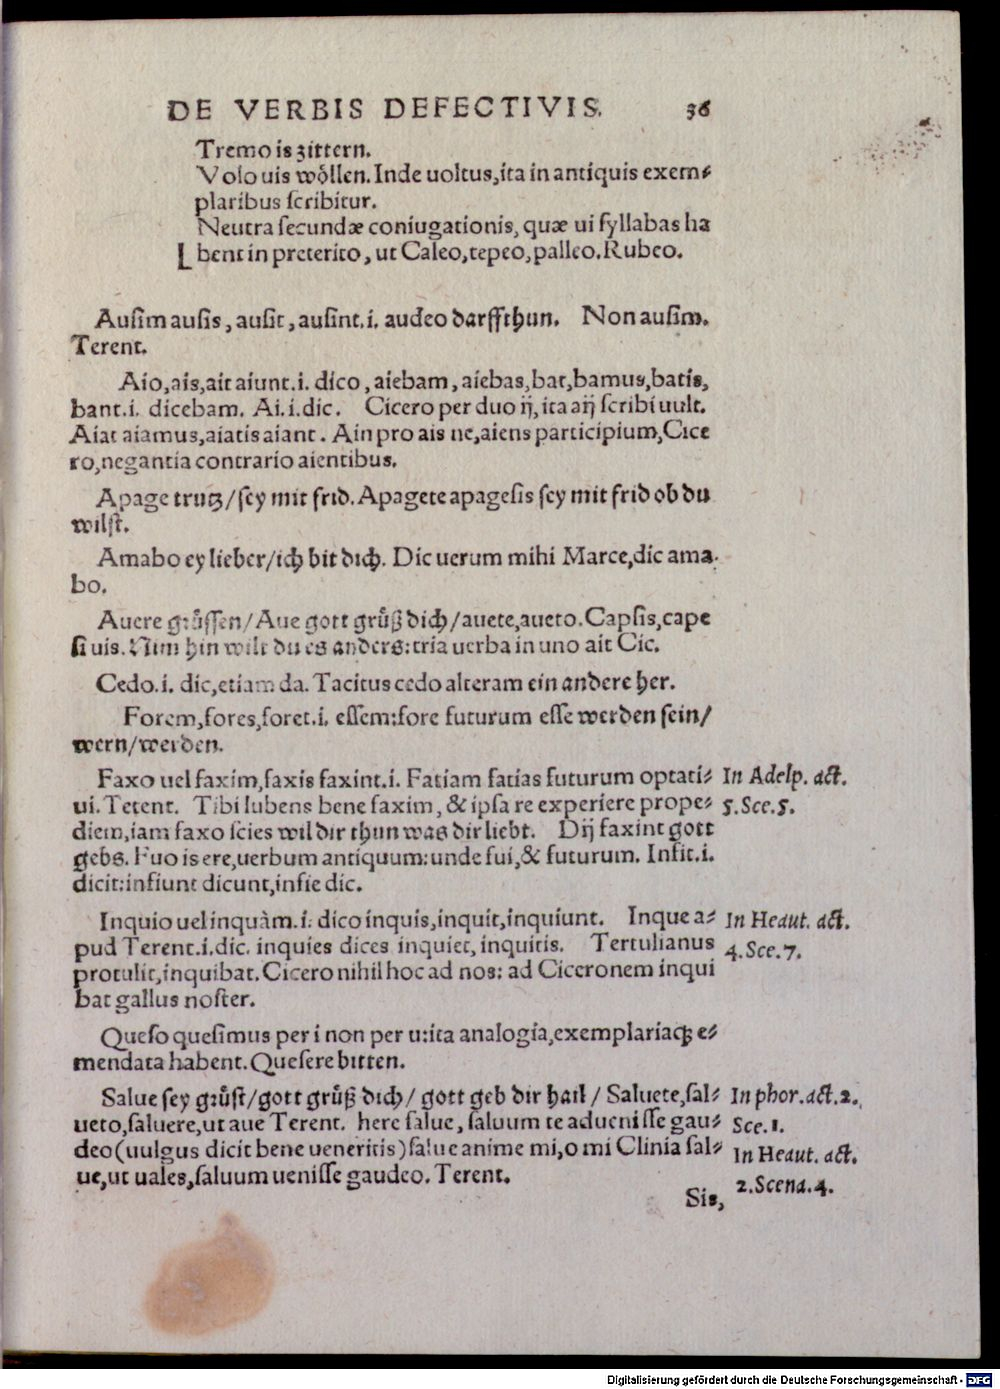 DE VERBIS DEFECTIVIS. 36
Tremo is zittern.
Volo uis wöllen. Inde uoltus, ita in antiquis exem⸗
plaribus scribitur.
Neutra secundæ coniugationis, quæ ui syllabas ha
bent in preterito, ut Caleo, tepeo, palleo. Rubeo.
Ausim ausis, ausit, ausint. i. audeo darff thun. Non ausim.
Terent.
Aio, ais, ait aiunt. i. dico, aiebam, aiebas, bat, bamus, batis,
bant. i. dicebam. Ai. i. dic. Cicero per duo ij, ita aij scribi uult.
Aiat aiamus, aiatis aiant. Ain pro ais ne, aiens participium, Cice
ro, negantia contrario aientibus.
Apage trutz/ sey mit frid. Apagete apagesis sey mit frid ob du
wilst.
Amabo ey lieber/ ich bit dich. Dic uerum mihi Marce, dic ama⸗
bo.
Auere grüssen/ Aue gott grüß dich/ auete, aueto. Capsis, cape
si uis. Nim hin wilt du es anders: tria uerba in uno ait Cic.
Cedo. i. dic, etiam da. Tacitus cedo alteram ein andere her.
Forem, fores, foret. i. essem: fore futurum esse werden sein/
wern/ werden.
Faxo uel faxim, faxis faxint. i. Fatiam fatias futurum optati⸗ In Adelp. act.
ui. Tetent. Tibi lubens bene faxim, & ipsa re experiere prope⸗ 5. Sce. 5.
diem, iam faxo scies wil dir thun was dir liebt. Dij faxint gott
gebs. Fuo is ere, uerbum antiquum: unde fui, & futurum. Insit. i.
dicit: insiunt dicunt, insie dic.
Inquio uel inquàm. i. dico inquis, inquit, inquiunt. Inque a⸗ In Heaut. act.
pud Terent. i. dic. inquies dices inquiet, inquitis. Tertulianus 4. Sce. 7.
protulit, inquibat. Cicero nihil hoc ad nos: ad Ciceronem inqui
bat gallus noster.
Queso quesimus per i non per u: ita analogia, exemplariaq̃ e⸗
mendata habent. Quesere bitten.
Salue sey grüst/ gott grüß dich/ gott geb dir hail/ Saluete, sal⸗ In phor. act. 2.
ueto, saluere, ut aue Terent. here salue, saluum te aduenisse gau⸗ Sce. 1.
deo (uulgus dicit bene ueneritis) salue anime mi, o mi Clinia sal⸗ In Heaut. act.
ue, ut uales, saluum uenisse gaudeo. Terent. 2. Scena. 4.
Sis,
Digitalisierung gefördert durch die Deutsche Forschungsgemeinschaft - DFG